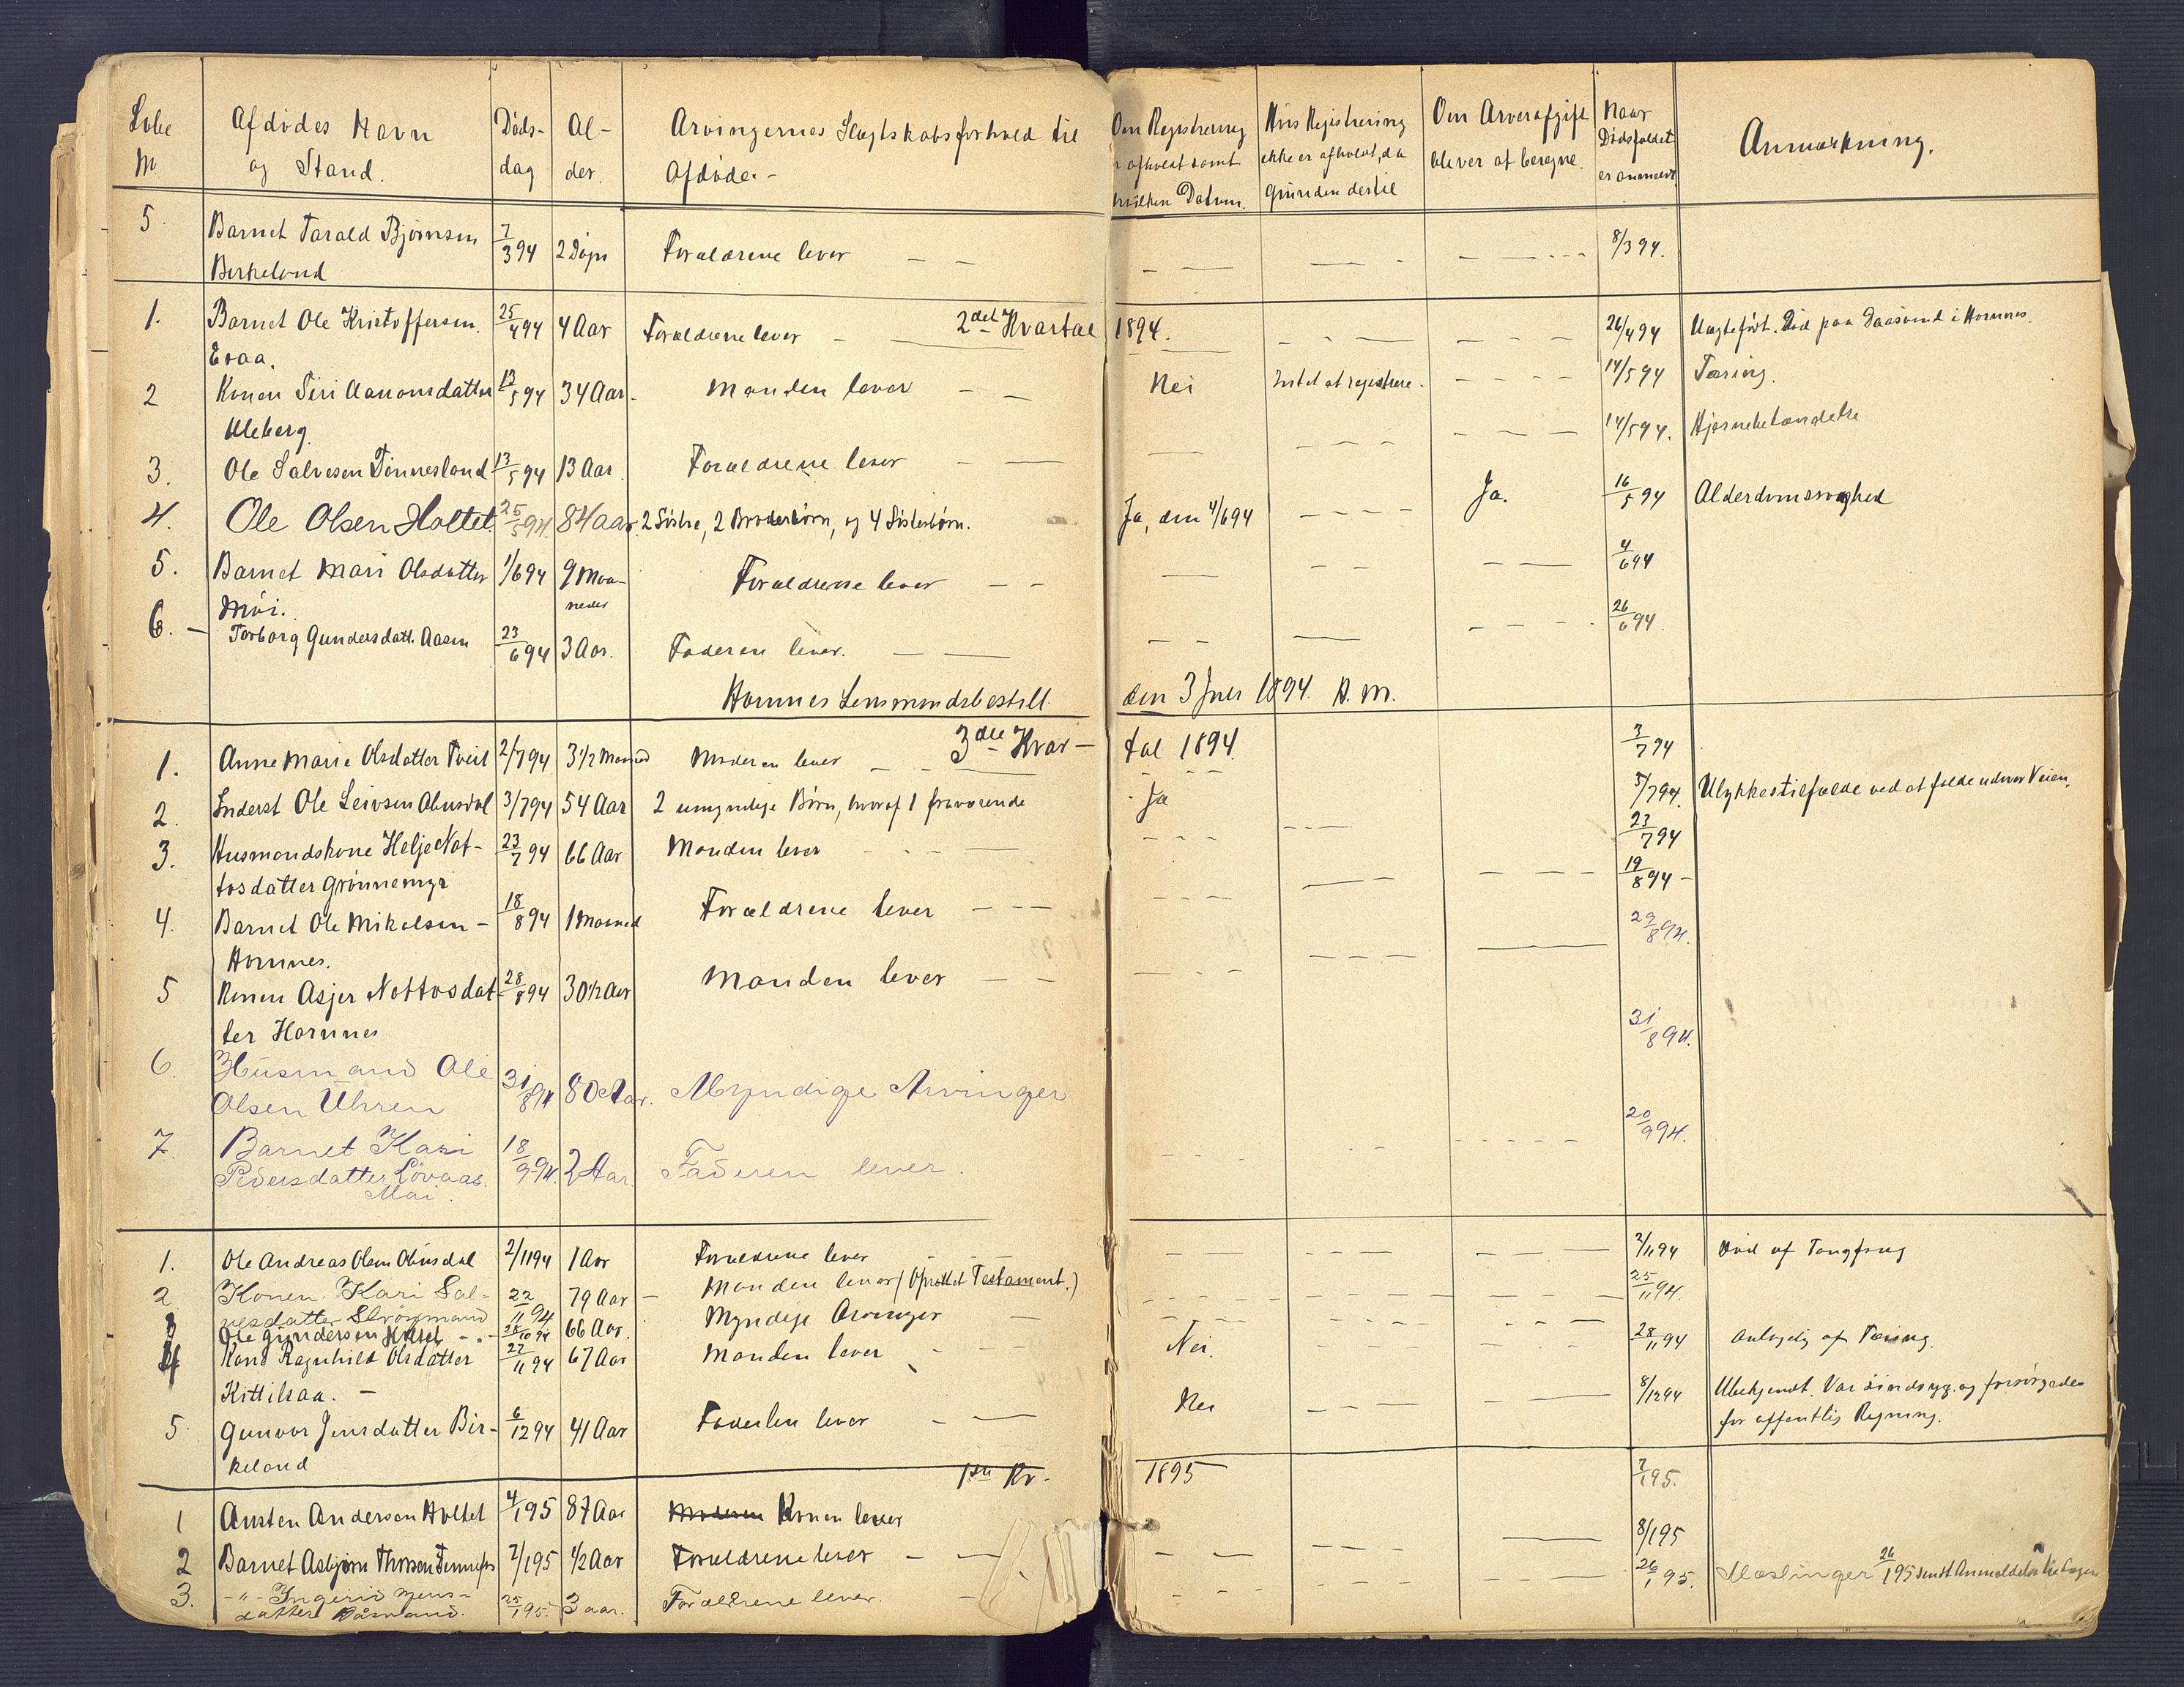 Løbe Afdødes Navn Døds- Al- Arvingernes Slægtskabsforhold til Om Registrering Hvis Registrering Om Arveafgift Naar Anmærkning.
№ og Stand. dag der. Afdøde.- er afholdt samt ikke er afholdt, da bliver at beregne. Dødsfaldet
hvilken Datum. Grunden dertil er anmeldt
5 Barnet Tarald Bjørnsen 7/3 94 2 Døgn Forældrene lever — — 8/3 94.
Birkeland
2det Kvartal 1894.
1. Barnet Ole Kristoffersen 25/4 94 4 Aar Forældrene lever 26/4 94 Død paa Daasvand i Hornnes.
Evaa.
2 Konen Siri Aanonsdatter 13/5 94 34 Aar. Manden lever Nei Intet at registrere. 14/5 94 Tæring.
Uleberg.
3. Ole Salvesen Tønnesland 13/5 94 13 Aar Forældrene lever 14/5 94. Hjernebetændelse
4. Ole Olsen Holtet 25/5 94. 84 aar. 2 Søstre, 2 Broderbørn, og 4 Søsterbørn. Ja, den 4/6 94 Ja. 16/5 94 Alderdomssvaghed
5. Barnet Mari Olsdatter 1/6 94 9 Maa- Forældrene lever 4/6 94
Møi. neder
6. Torborg Gundersdatt. Aasen 23/6 94 3 Aar. Faderen lever. 26/6 94.
Hornnes Lensmandsbestill. den 3 Juli 1894
3die Kvar- tal 1894.
1. Anne Marie Olsdatter Tveit 2/7 94 3 1/2 Maaned Moderen lever 3/7 94
2. Inderst Ole Leivsen Abusdal 3/7 94 54 Aar 2 umyndige Børn, hvoraf 1 fraværende Ja 5/7 94. Ulykkestilfælde ved at falde udover Veien.
3. Husmandskone Helje Not- 23/7 94 66 Aar Manden lever 23/7 94
tosdatter Grønnemyr
4. Barnet Ole Mikalsen - 18/8 94 1 Maaned Forældrene lever 19/8 94 -
Hornnes.
5 Konen Asjer Nottosdat- 28/8 94 30 1/2 Aar Manden lever 29/8 94.
ter Hornnes
6. Husmand Ole 31/8 94 80 Aar. Myndige Arvinger 31/8 94.
Olsen Uhren
7. Barnet Kari 18/9 94. 2 Aar. Faderen lever. 20/9 94.
Pedersdatter Løvaas.
Moi.
1. Ole Andreas Olsen Abusdal 2/11 94 1 Aar Forældrene lever 2/11 94 Død af
2 Konen Kari Sal- 22/11 94 79 Aar - Manden lever (Oprettet Testament.) 25/11 94.
vesdatter
3 Ole Gundersen 28/10 94 66 Aar. Myndige Arvinger
4 Kone Ragnhild Olsdatter 27/11 94 67 Aar Manden lever Nei. 28/11 94 Antagelig af Tæring.
Kittilsaa. -
5. Gunvor Jensdatter Bir- 6/12 94 41 Aar Faderen lever Nei 8/12 94 Ubekjendt. Var sindssyg. og forsørgedes
keland for offentlig Regning.
1ste Kv. 1895
1 Austen Andersen Holtet 4/1 95 87 Aar Moderen Konen lever 7/1 95.
2 Barnet Asbjørn 7/1 95 1/2 Aar Forældrene lever 8/1 95
3. -"- Ingerid Jens- 25/1 95. 3 aar. Forældrene lever. 26/1 95. Mæslinger 26/1 95 sendt Anmeldelse
datter Dåsvand.